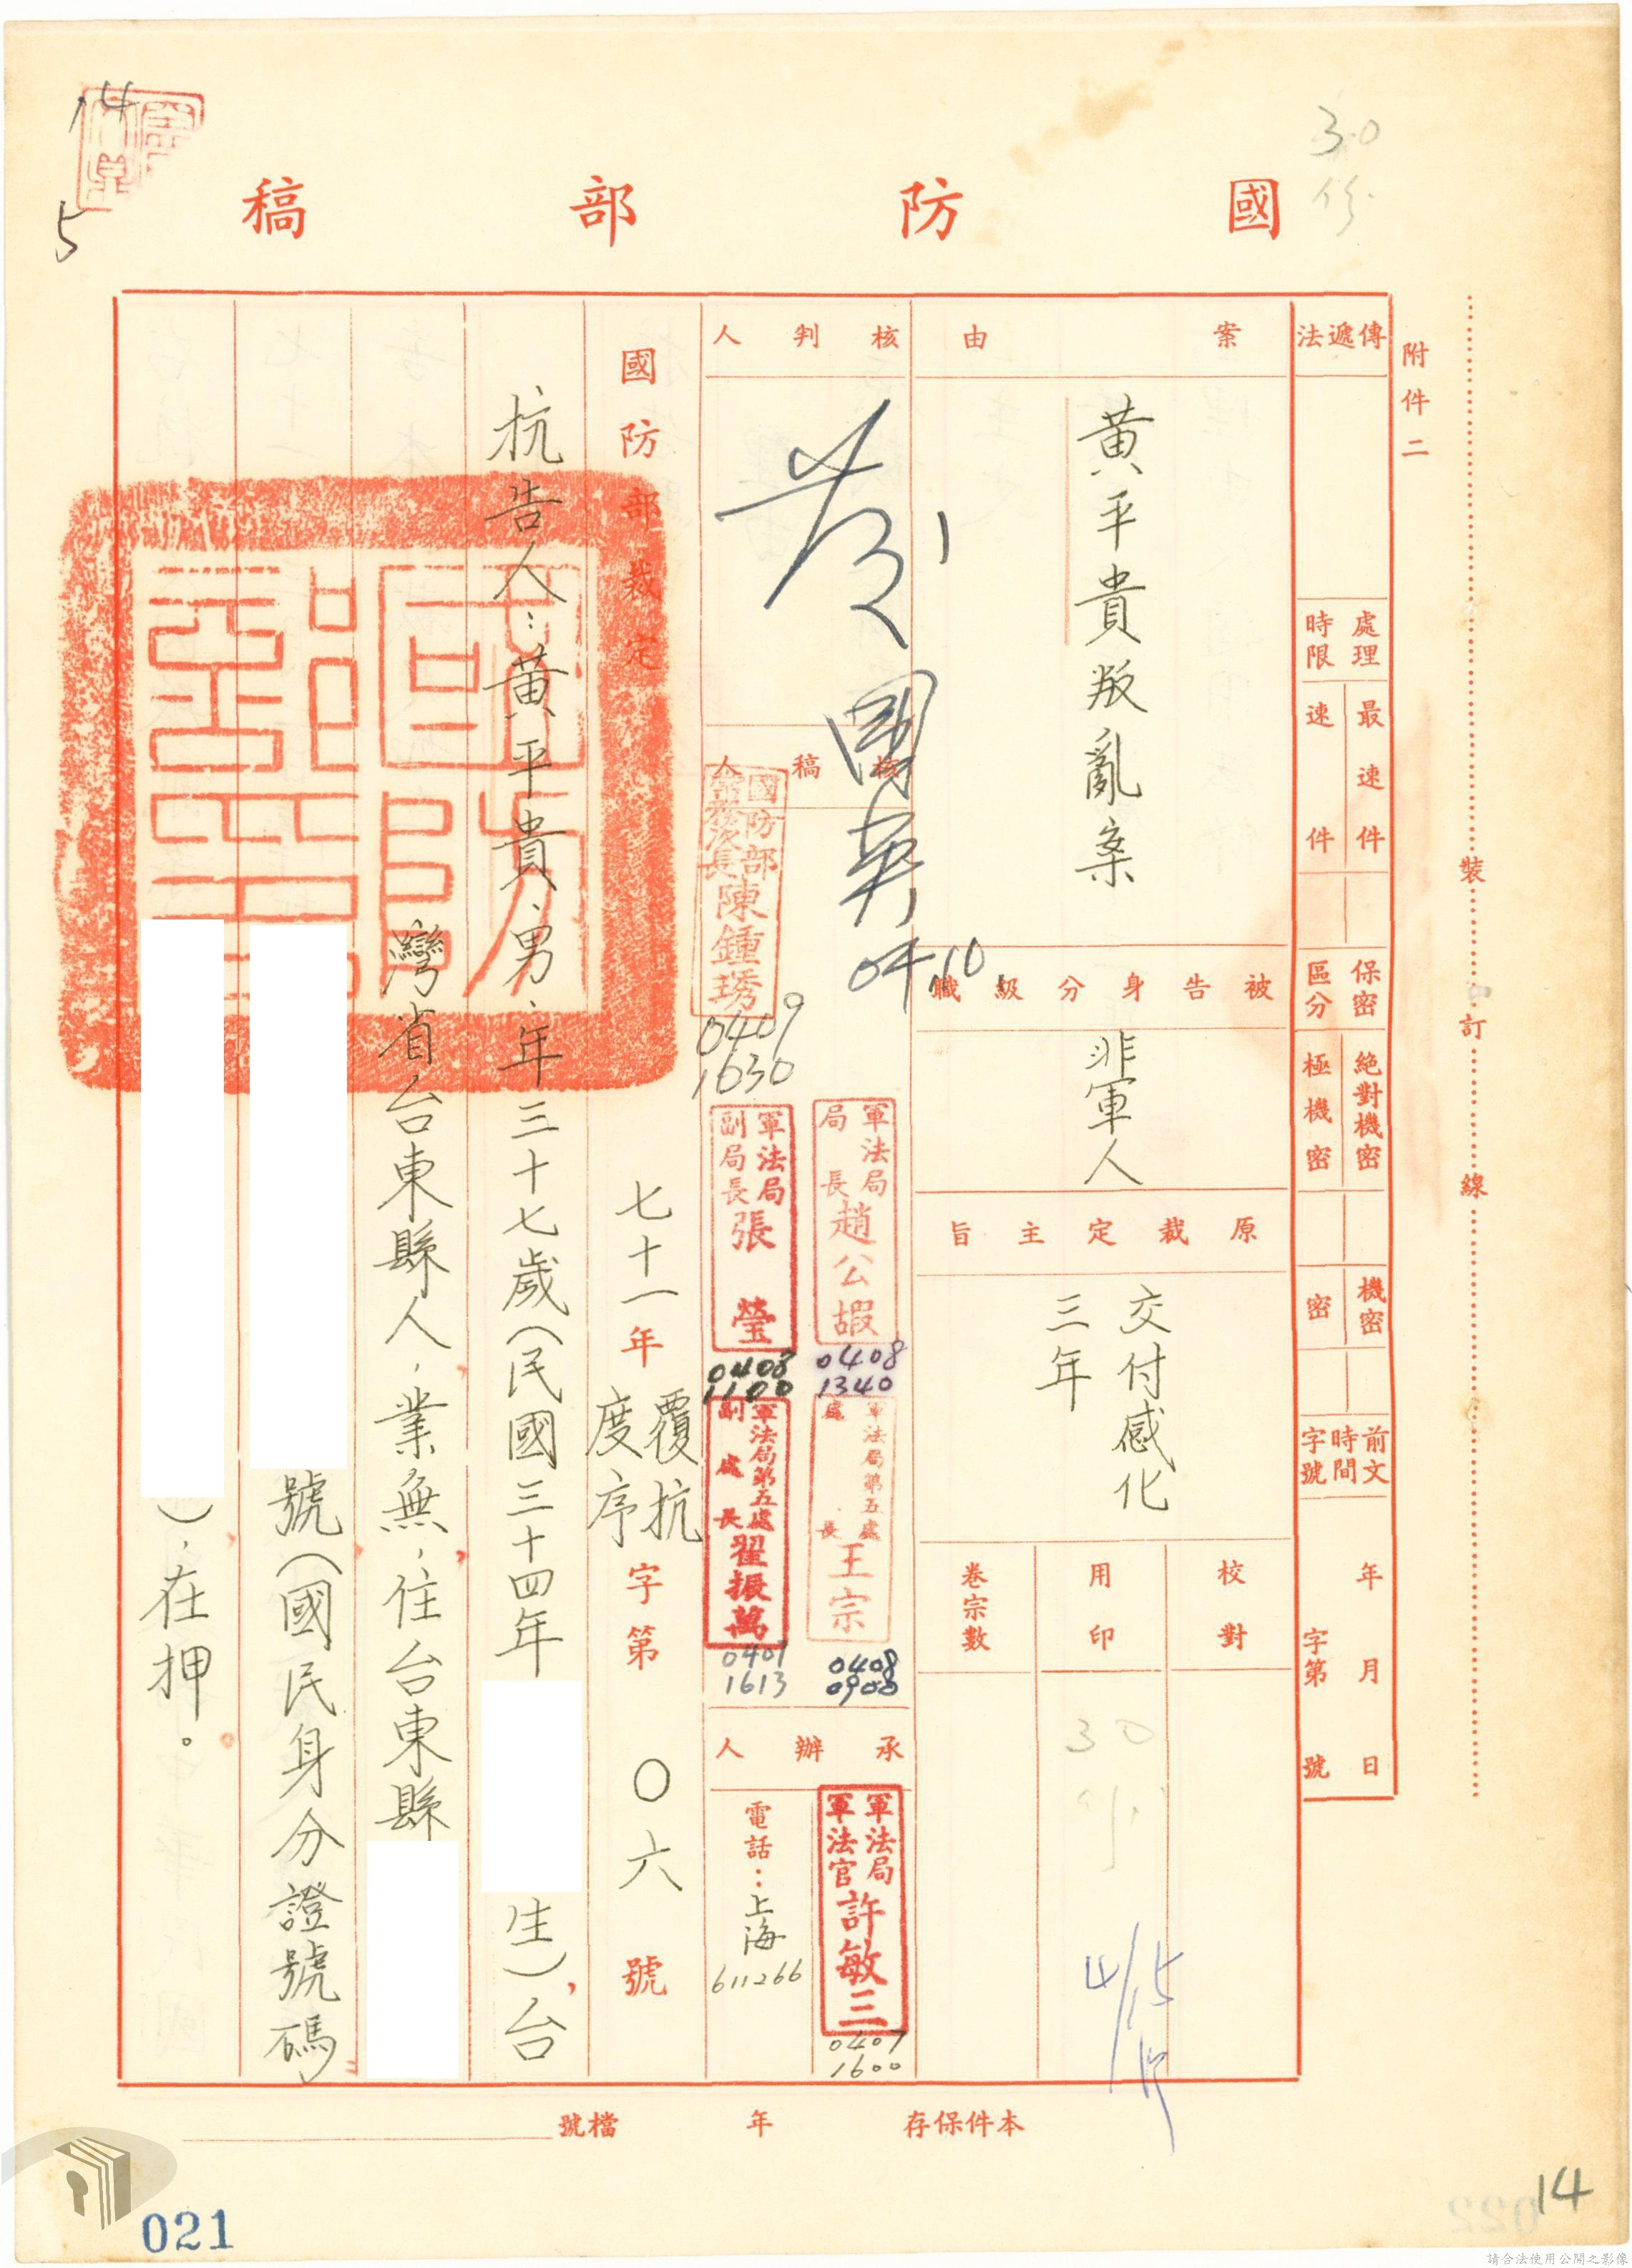 14
5
30
份
國防部稿
附件二
裝訂線
傳遞法
處理時限
最速件
速件
保密區分
絕對機密
極機密
機密
密
前文時間字號
年月日
字第號
案由
黃平貴叛亂案
被告身分級職
非軍人
原裁定主旨
交付感化
三年
校對
用印
30
4/15
卷宗數
核判人
國英
0410
核稿人
國防部
常務次長陳鍾琇
0409
1630
軍法局
局長趙公嘏
0408
1340
軍法局
副局長張瑩
0408
1100
軍法局第五處
處長王宗
0408
0900
軍法局第五處
副處長翟振萬
0407
1613
承辦人
軍法局
軍法官許敏三
0407
1600
電話：上海
611266
國防部裁定
七十一年覆抗度序字第〇六號
抗告人：黃平貴、男、年三十七歲（民國三十四年
生），台
灣省台東縣人，業無，住台東縣
號（國民身分證號碼
），在押。
本件保存年
檔號
021
14
022
請合法使用公開之影像